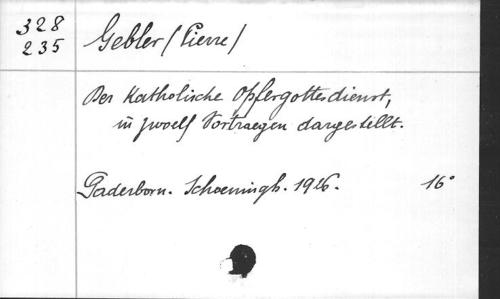 328
235
Gebler (Pierre)
Der Katholische Opfergottesdienst,
in zwoelf Vortraegen dargestellt.
Paderborn. Schoeningh. 1926. 16°